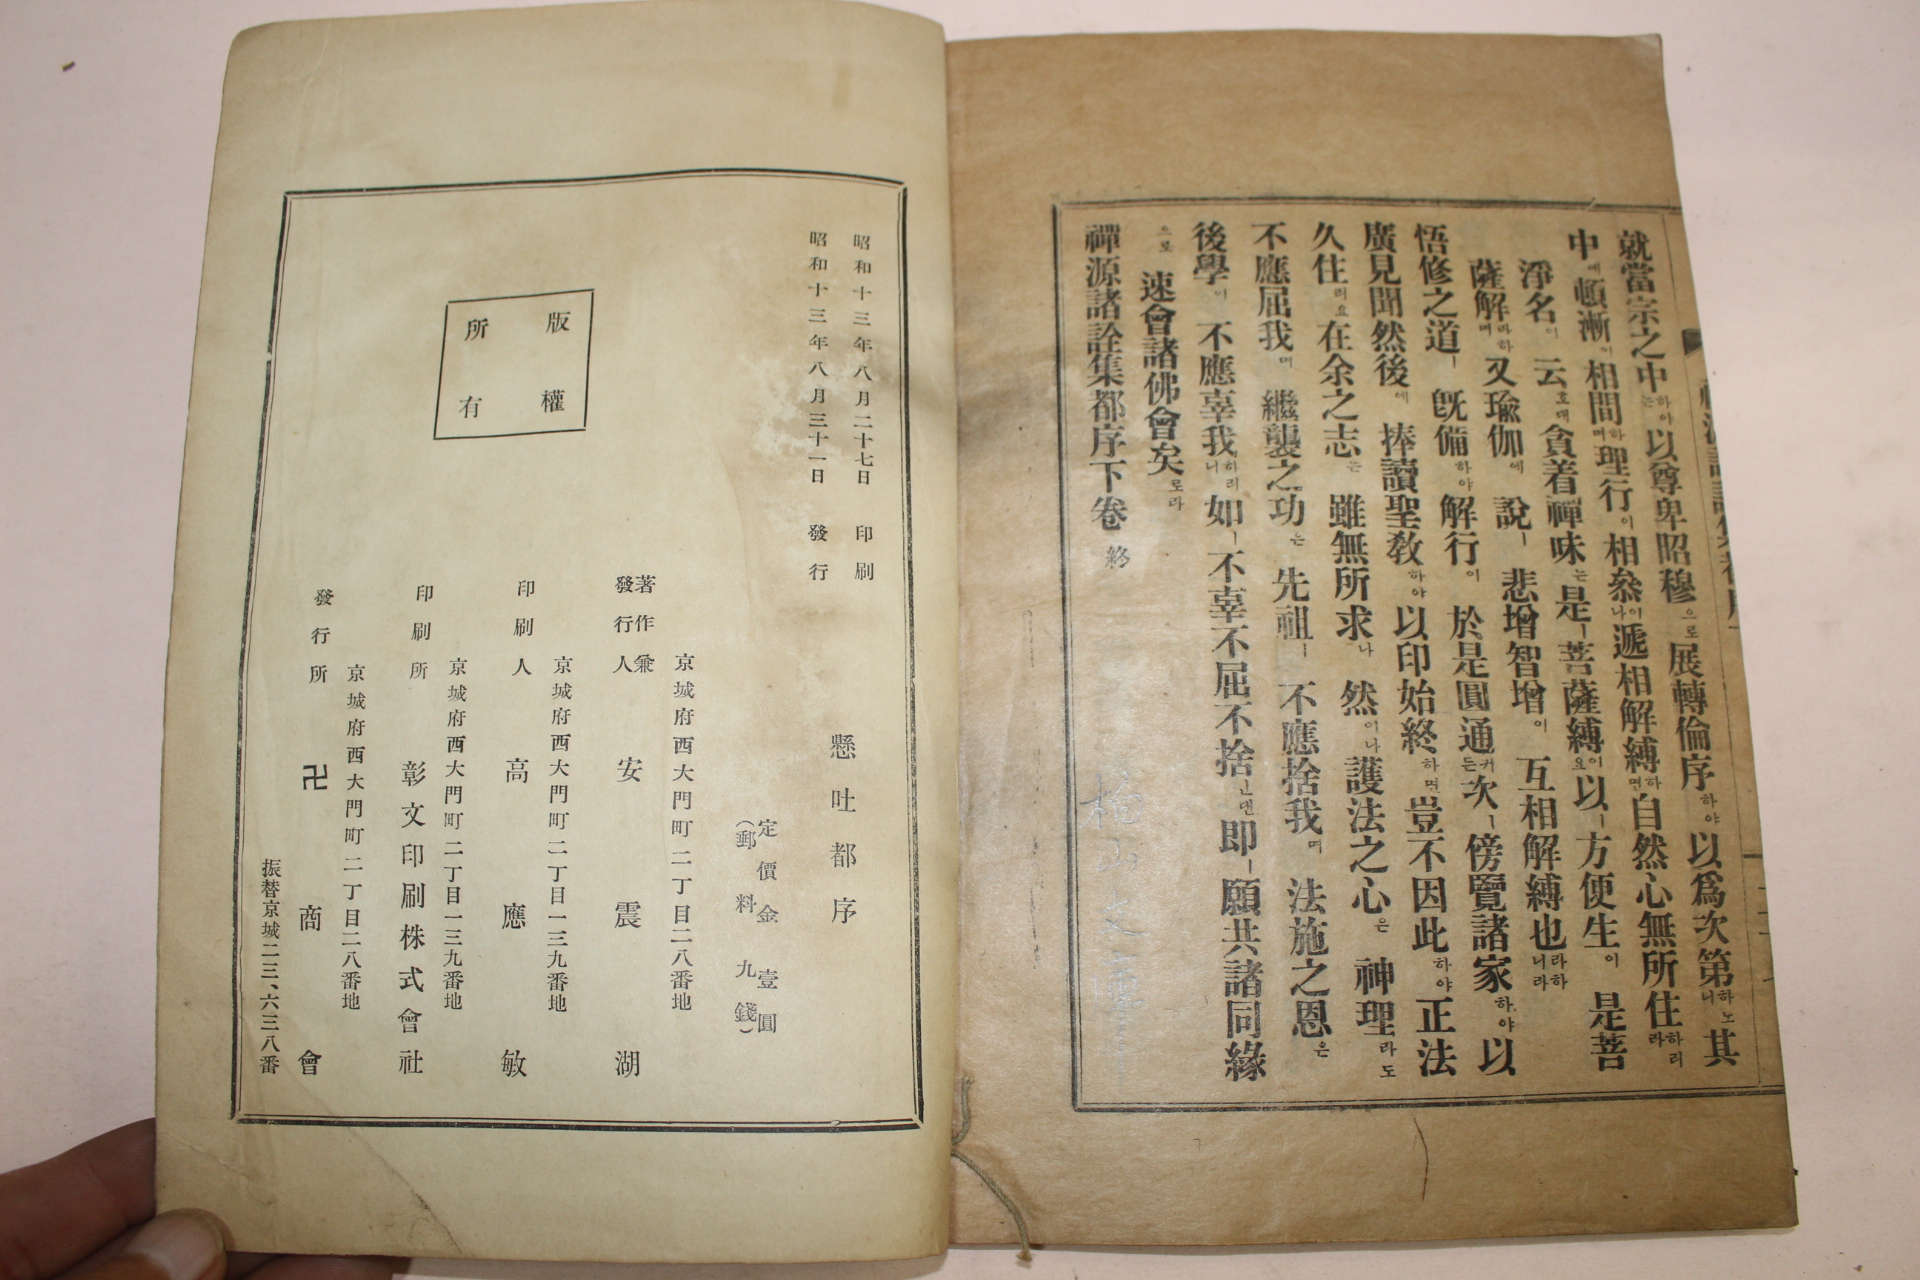 就當宗之中하야는以尊卑昭穆으로展轉倫序하야以爲次第하노니其
中에頓漸이相間하며理行이相叅이나遞相解縛하면自然心無所住하리라
淨名이云호대貪着禪味는是ㅣ菩薩縛이요以ㅣ方便生이是菩
薩解라하며又瑜伽에說ㅣ悲增智增이互相解縛也라하니라
悟修之道ㅣ旣備하야解行이於是圓通커든次ㅣ傍覽諸家하야以
廣見聞然後에捧讀聖敎하야以印始終하면豈不因此하야正法
久住리요在余之志는雖無所求나然이나護法之心은神理라도
不應屈我며繼襲之功은先祖ㅣ不應捨我며法施之恩은
後學이不應辜我하리니如ㅣ不辜不屈不捨ㄴ댄即ㅣ願共諸同緣
으로速會諸佛會矣로라
禪源諸詮集都序下卷 終
昭和十三年八月二十七日 印刷
昭和十三年八月三十一日 發行
版權
所有
懸吐都序
定價金 壹圓
(郵料 九錢)
京城府西大門町二丁目二八番地
著作兼
發行人 安震湖
京城府西大門町二丁目一三九番地
印刷人 高應敏
京城府西大門町二丁目一三九番地
印刷所 彰文印刷株式會社
京城府西大門町二丁目二八番地
發行所 卍商會
振替京城二三、六三八番